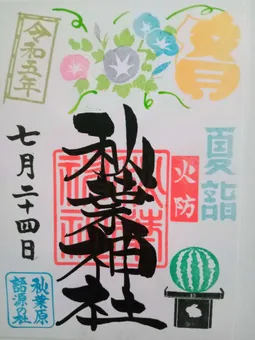 令和五年
七月二十四日
秋葉神社
夏詣
火防
秋葉原
語源の社